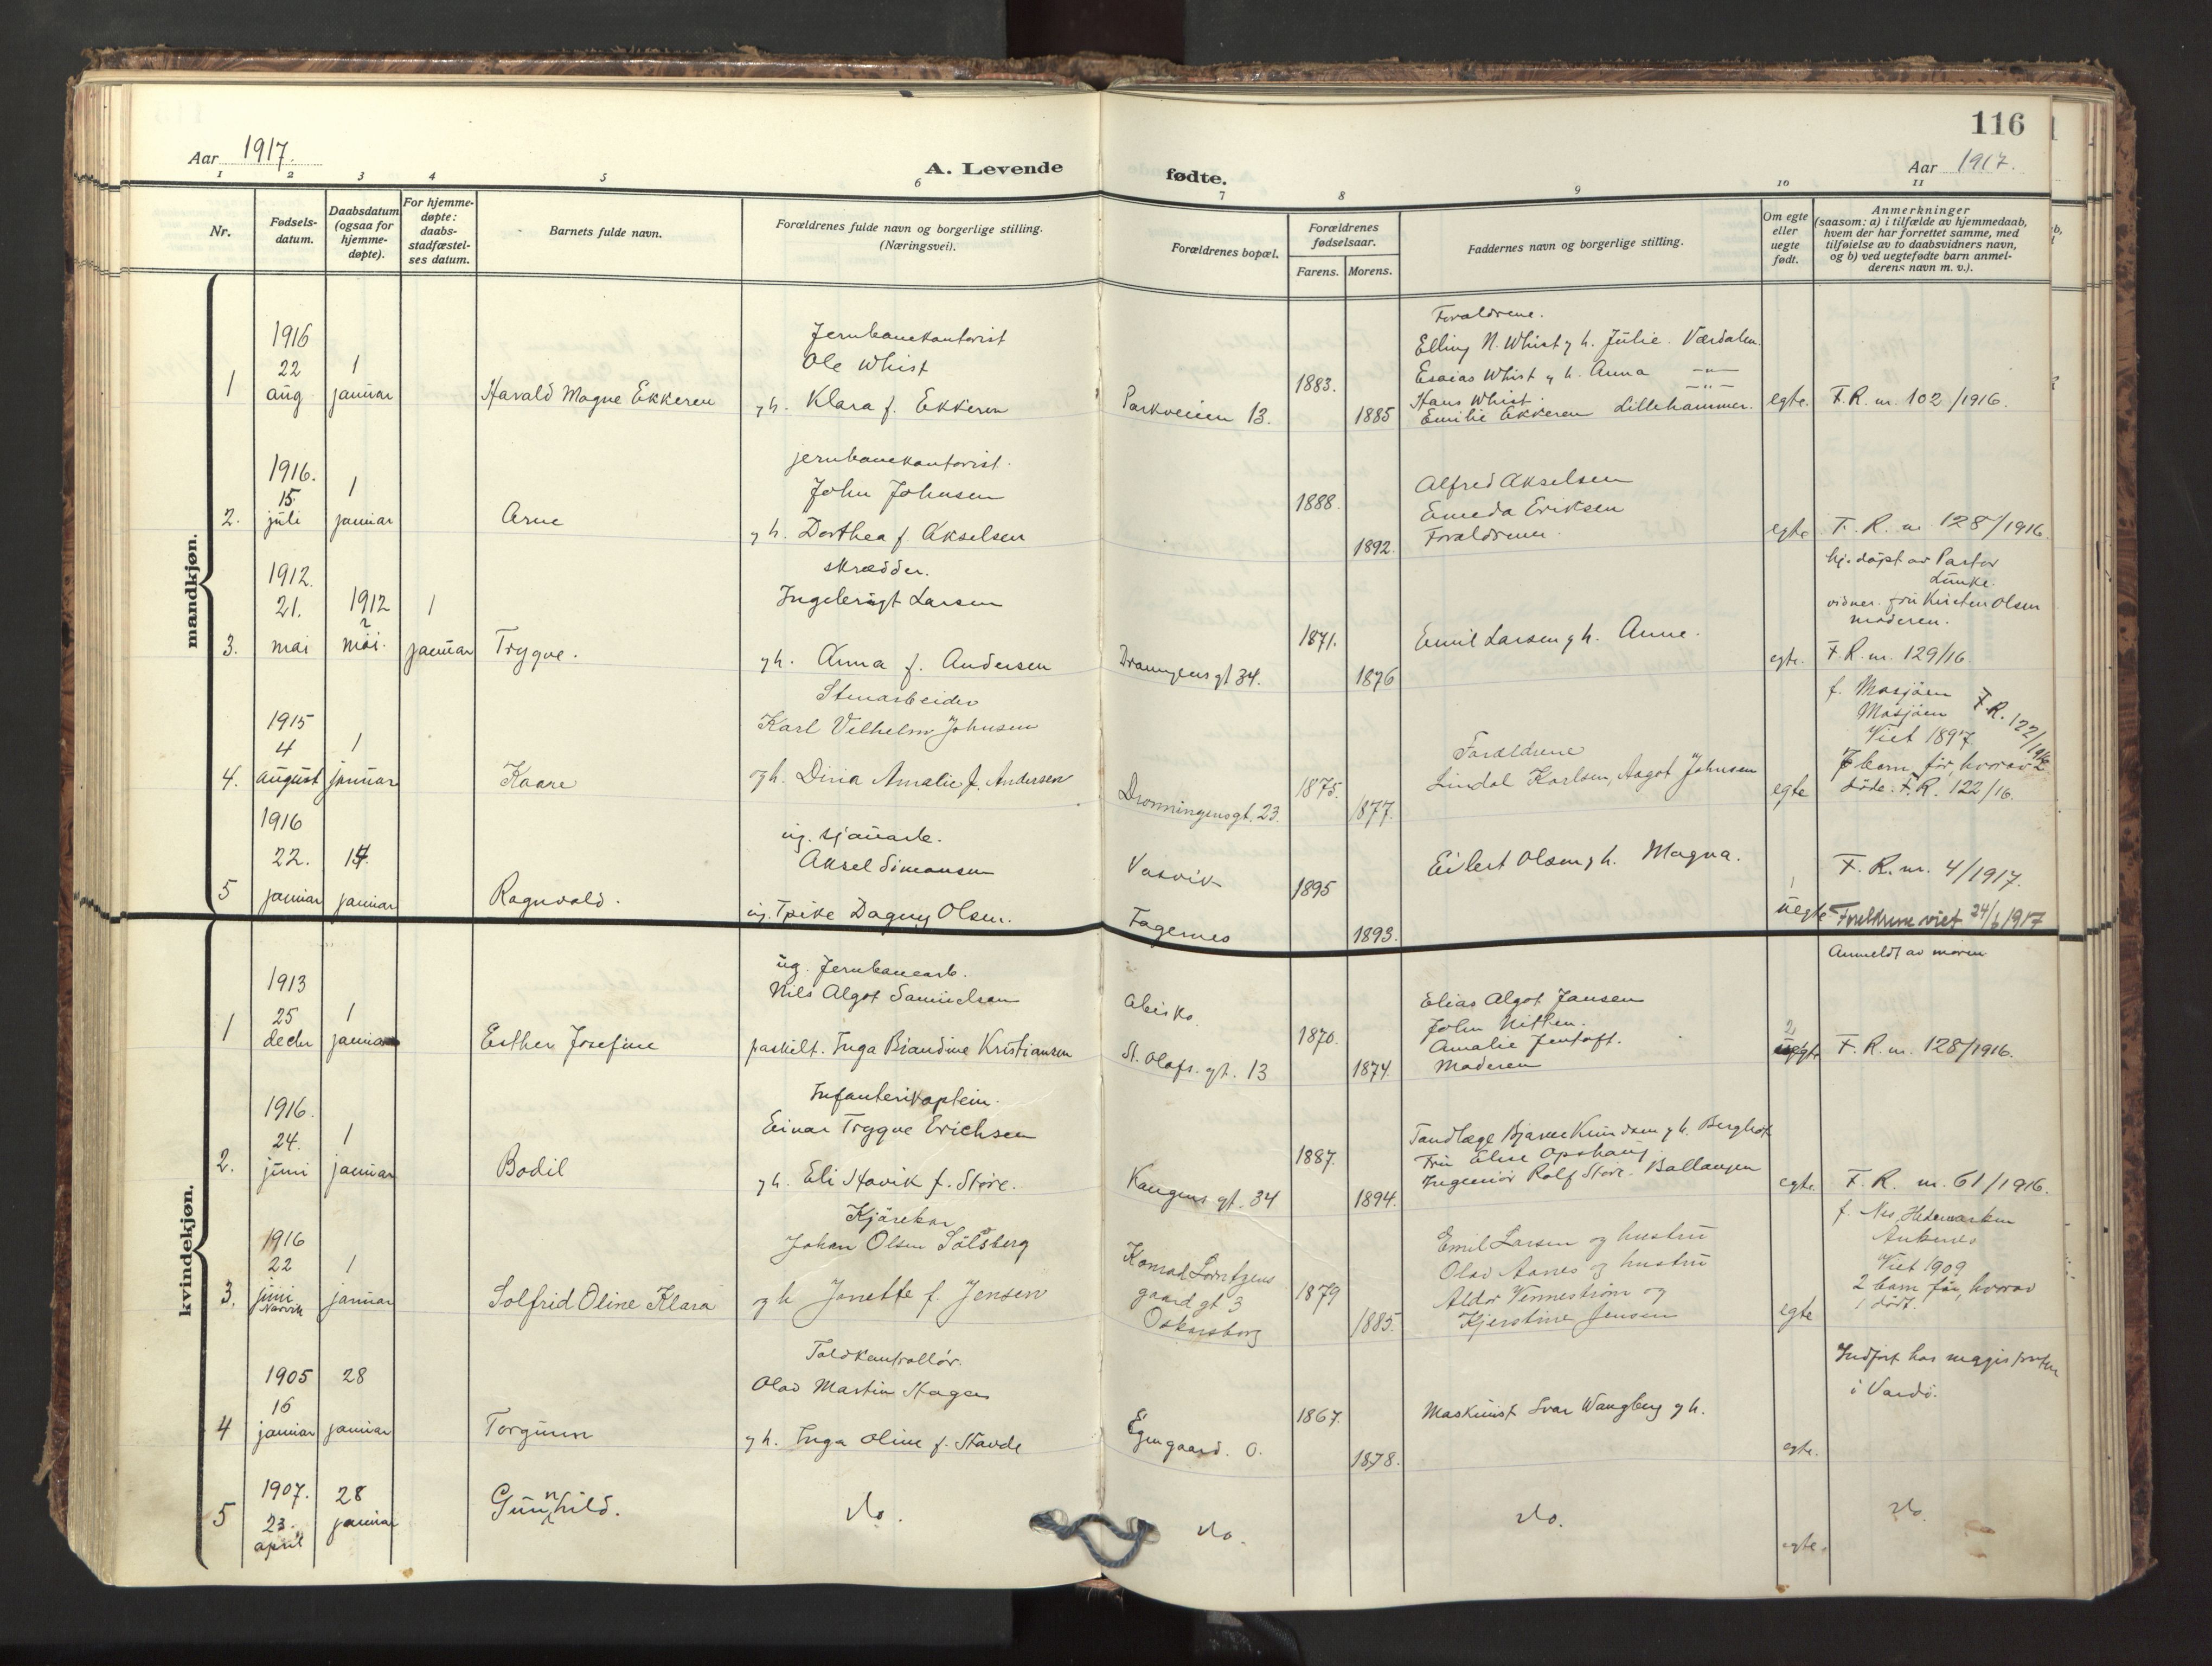 116
Aar 1917.
A. Levende
fødte.
Aar 1917.
1 2 3 4 5 6 7 8 9 10 11
Nr.
Fødsels-
datum.
Daabsdatum
(ogsaa for
hjemme-
døpte).
For hjemme-
døpte:
daabs-
stadfæstel-
ses datum.
Barnets fulde navn.
Forældrenes fulde navn og borgerlige stilling.
(Næringsvei).
Forældrenes bopæl.
Forældrenes
fødselsaar.
Farens. Morens.
Faddernes navn og borgerlige stilling.
Om egte
eller
uegte
født.
Anmerkninger
(saasom: a) i tilfælde av hjemmedaab,
hvem der har forrettet samme, med
tilføielse av to daabsvidners navn,
og b) ved uegtefødte barn anmel-
derens navn m. v.).
mandkjøn.
1
1916
22
aug
1
januar
Harald Magne Ekkeren
Jernbanekontorist
Ole Whist
g h. Klara f. Ekkeren
Parkveien 13.
1883.
1885
Forældrene.
Elling N. Whist g h. Julie Værdalen.
Esaias Whist g h. Anna -"-
Hans Whist. -"-
Emilie Ekkeren Lillehammer.
egte.
F. R. nr. 102/1916.
2.
1916.
15.
juli
1
januar
Arne
jernbanekontorist.
John Johnsen
g h. Dorthea f Akselsen
1888.
1892.
Alfred Akselsen
Emeda Eriksen
Forældrene.
egte
F. R. nr 128/1916.
3.
1912.
21.
mai
1912
2
mai.
1
januar
Trygve.
skrædder.
Ingebrigt Larsen
g h. Anna f. Andersen
Dronngens gt 34.
1871.
1876
Emil Larsen g h. Anne.
egte.
hj. døpt av Pastor
Lunke.
vidner. fru Kirsten Olsen
moderen.
F. R. nr. 129/16.
4.
1915
4
august
1
januar
Kaare
Stenarbeider
Karl Vilhelm Johnsen
og h. Dina Amalie f. Andersen
Dronningens gt. 23.
1875.
1877.
Forældrene
Lindol Karlsen, Aagot Johnsen
egte
f. Mosjøen
Mosjøen
F. R. 122/1916
Viet 1897
7 barn før, hvorav 2
døde. F. R. 122/16.
5
1916
22.
januar
14.
januar
Ragnvald.
ug. sjauarb.
Aksel Simonsen
ug. Tpike Dagny Olsen.
Vasvik
Fagernes
1895
1893.
Eilert Olsen g h. Magna.
1
uegte
F. R. nr. 4/1917.
Forældrene viet 24/6 1917
kvindekjøn.
1
1913
25
decbr
1
januar
Esther Josefine
ug. Jernbanearb.
Nils Algot Samuelsen
fraskilt. Inga Blandine Kristiansen
Abisko.
St. Olafs. gt. 13
1870.
1874.
Elias Algot Jansen
John Nitten.
Amalie Jentoft.
Moderen
2
uegte
Anmeldt av moren
F. R. nr. 128/1916.
2.
1916.
24.
juni
1
januar
Bodil
Infanterikaptein.
Einar Trygve Erichsen
g h. Eli Hovik f. Støre.
Kongens gt. 34
1887.
1894.
Tandlæge Bjarne Knudsen g h. Berghof
Fru Elise Opshaug
Ingeniør Rolf Støre. Ballangen
egte.
F. R. nr. 61/1916.
3.
1916
22
juni
Narvik
1
januar
Solfrid Oline Klara
Kjørekar
Johan Olsen Sølsberg
og h Janette f. Jensen
Konrad Lorntzens
gaard gt 3
Oskarsborg
1879
1885.
Emil Larsen og hustru
Olav Aanes og hustru
Aldor Vennestrøm og
Kjerstine Jensen
egte
f. Nes, Hedemarken
Ankenes
Viet 1909
2 barn før, hvorav
1 dødt.
4
1905
16
januar
28
januar
Torgunn
Toldkontrollør.
Olav Martin Hagen
g h. Inga Oline f. Stavde
Egengaard. O.
1867.
1878.
Maskinist Ivar Wangberg g h.
egte.
Indført hos magistraten
i Vardø.
5
1907.
23.
april
28
januar
Gunnhild.
do.
do.
do.
egte.
do.